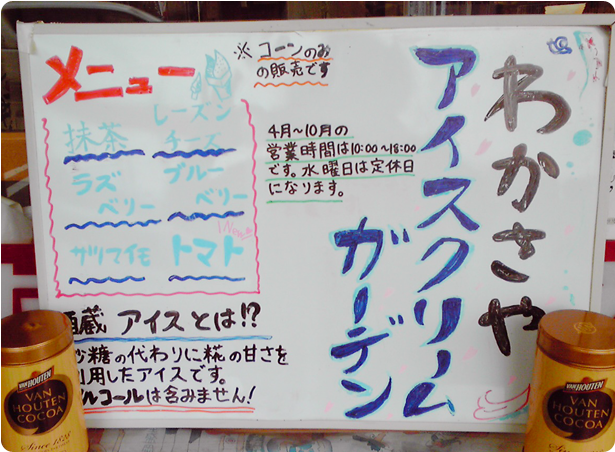 わかさや
アイスクリーム
ガーデン
※コーンのみ
の販売です
4月～10月の
営業時間は10:00～18:00
です。水曜日は定休日
になります。
メニュー
抹茶
レーズン
チーズ
ラズ
ベリー
ブルー
ベリー
サツマイモ
New
トマト
酒蔵 アイスとは!?
砂糖の代わりに糀の甘さを
利用したアイスです。
アルコールは含みません!
VAN HOUTEN
VAN
HOUTEN
COCOA
Since 1828
VAN HOUTEN
VAN
HOUTEN
COCOA
Since 1828